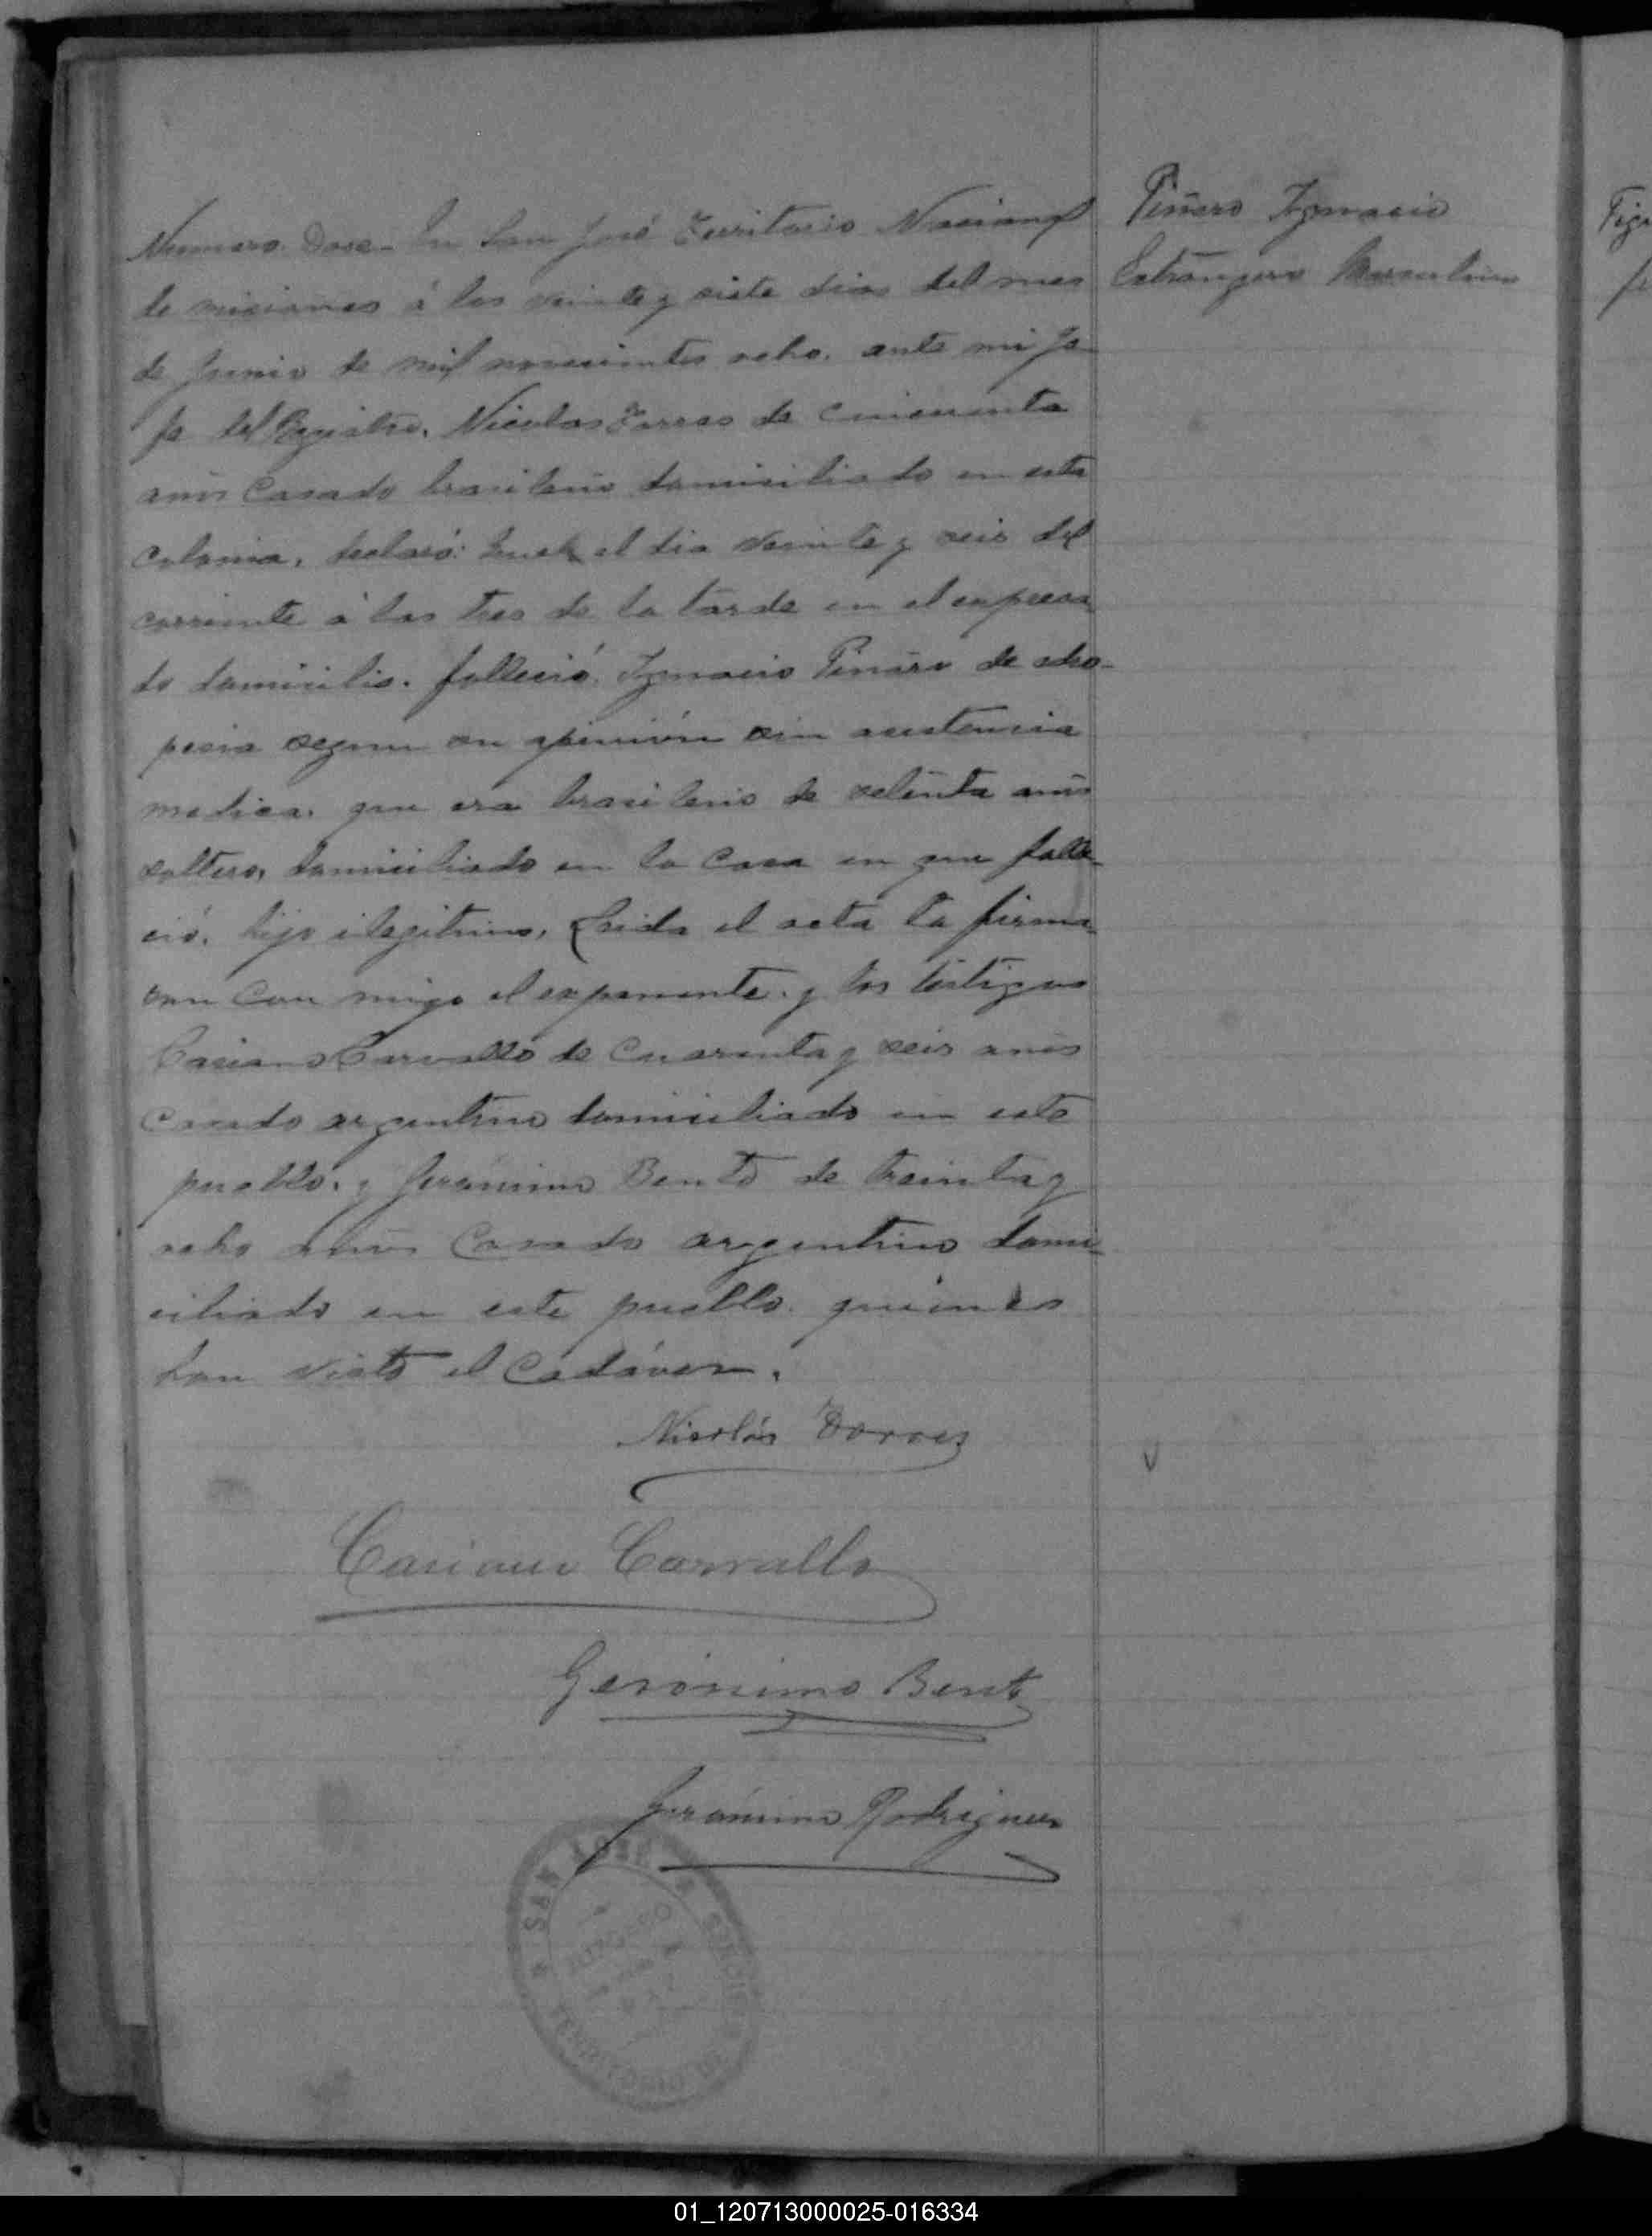 Piñero Ignacio
Extrangero Masculino
Numero Doce - En San José Territorio Nacional
de misiones á los veinte y siete dias del mes
de Junio de mil novecientos ocho. ante mi Je-
fe del Registro. Nicolas Torres de cincuenta
años Casado brasileño domiciliado en esta
colonia, declaró: Que el dia veinte y seis del
corriente á las tres de la tarde en el expresa
do domicilio. falleció. Ignacio Piñero de
segun su opinión sin asistencia
medica. que era brasileño de setenta años
soltero, domiciliado en la Casa en que falle-
ció. hijo ilegitimo, Leida el acta la firma-
ron con migo el exponente. y los testigos
Casiano Carvallo de Cuarenta y seis años
Casado argentino domiciliado en este
pueblo. y Gerónimo Bento de treinta y
ocho años Casado argentino domi-
ciliado en este pueblo. quienes
han visto el Cadáver.
Nicolás Torres
Casiano Carvallo
Gerónimo Bento
Gerónimo Rodriguez
SAN JOSÉ
TERRITORIO DE
01_120713000025-016334